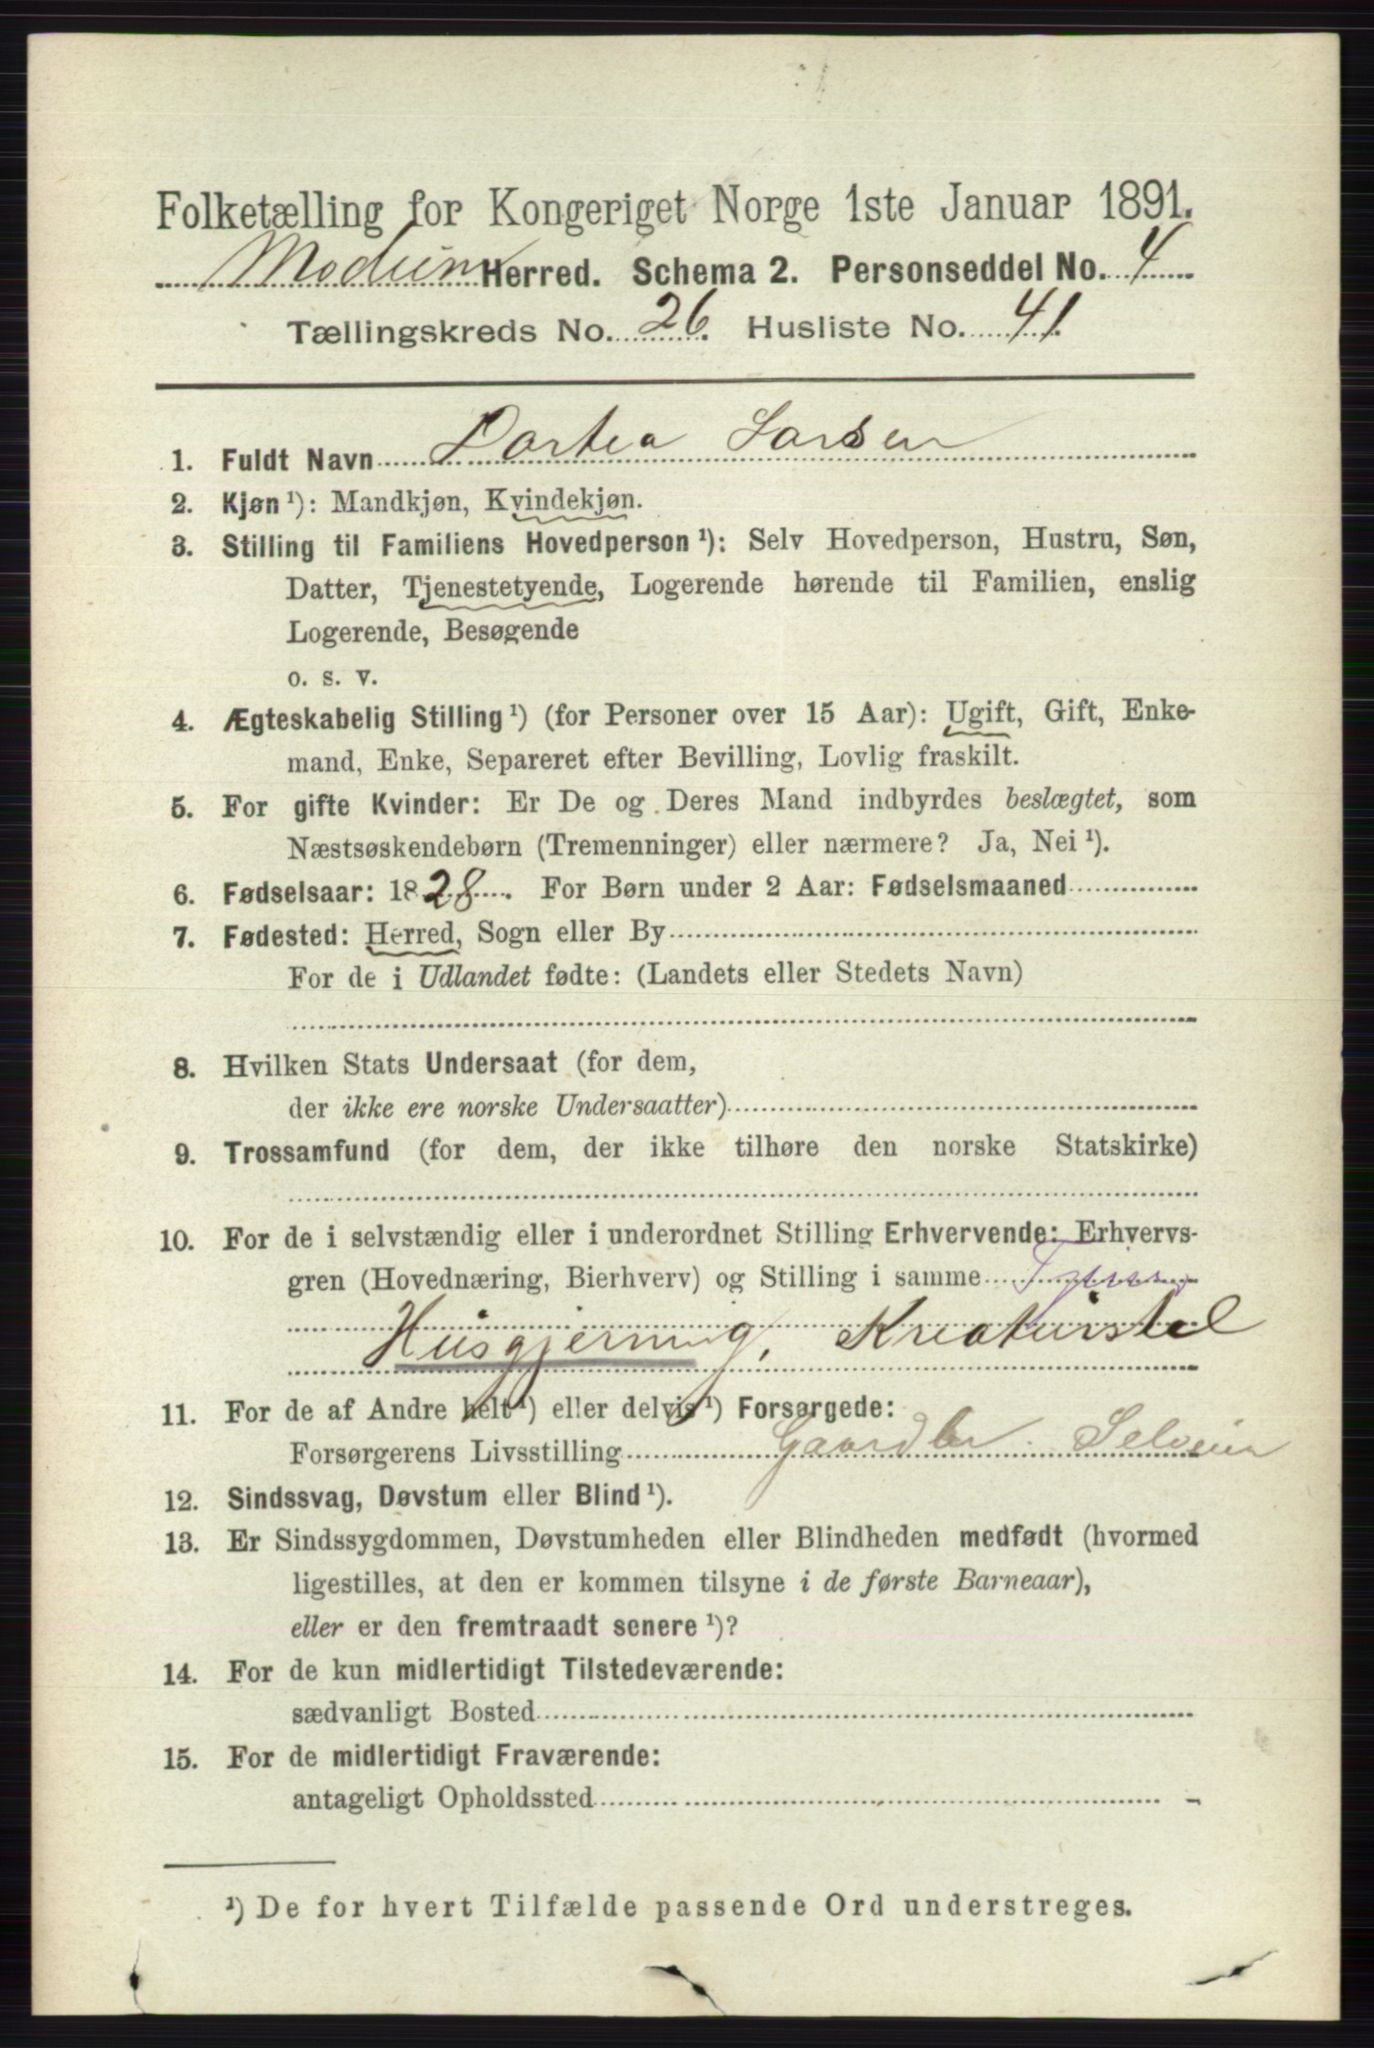 Folketælling for Kongeriget Norge 1ste Januar 1891.
Modum Herred. Schema 2. Personseddel No. 4
Tællingskreds No. 26. Husliste No. 41.
1. Fuldt Navn Dortea Larsen
2. Kjøn ¹): Mandkjøn, Kvindekjøn.
3. Stilling til Familiens Hovedperson ¹): Selv Hovedperson, Hustru, Søn,
Datter, Tjenestetyende, Logerende hørende til Familien, enslig
Logerende, Besøgende
o. s. v.
4. Ægteskabelig Stilling ¹) (for Personer over 15 Aar): Ugift, Gift, Enke-
mand, Enke, Separeret efter Bevilling, Lovlig fraskilt.
5. For gifte Kvinder: Er De og Deres Mand indbyrdes beslægtet, som
Næstsøskendebørn (Tremenninger) eller nærmere? Ja, Nei ¹).
6. Fødselsaar: 1828. For Børn under 2 Aar: Fødselsmaaned
7. Fødested: Herred, Sogn eller By
For de i Udlandet fødte: (Landets eller Stedets Navn)
8. Hvilken Stats Undersaat (for dem,
der ikke ere norske Undersaatter)
9. Trossamfund (for dem, der ikke tilhøre den norske Statskirke)
10. For de i selvstændig eller i underordnet Stilling Erhvervende: Erhvervs-
gren (Hovednæring, Bierhverv) og Stilling i samme
Husgjerning, Kreaturstel
11. For de af Andre helt ¹) eller delvis ¹) Forsørgede:
Forsørgerens Livsstilling Gaardbr. Selveier
12. Sindssvag, Døvstum eller Blind ¹).
13. Er Sindssygdommen, Døvstumheden eller Blindheden medfødt (hvormed
ligestilles, at den er kommen tilsyne i de første Barneaar),
eller er den fremtraadt senere ¹)?
14. For de kun midlertidigt Tilstedeværende:
sædvanligt Bosted
15. For de midlertidigt Fraværende:
antageligt Opholdssted
¹) De for hvert Tilfælde passende Ord understreges.